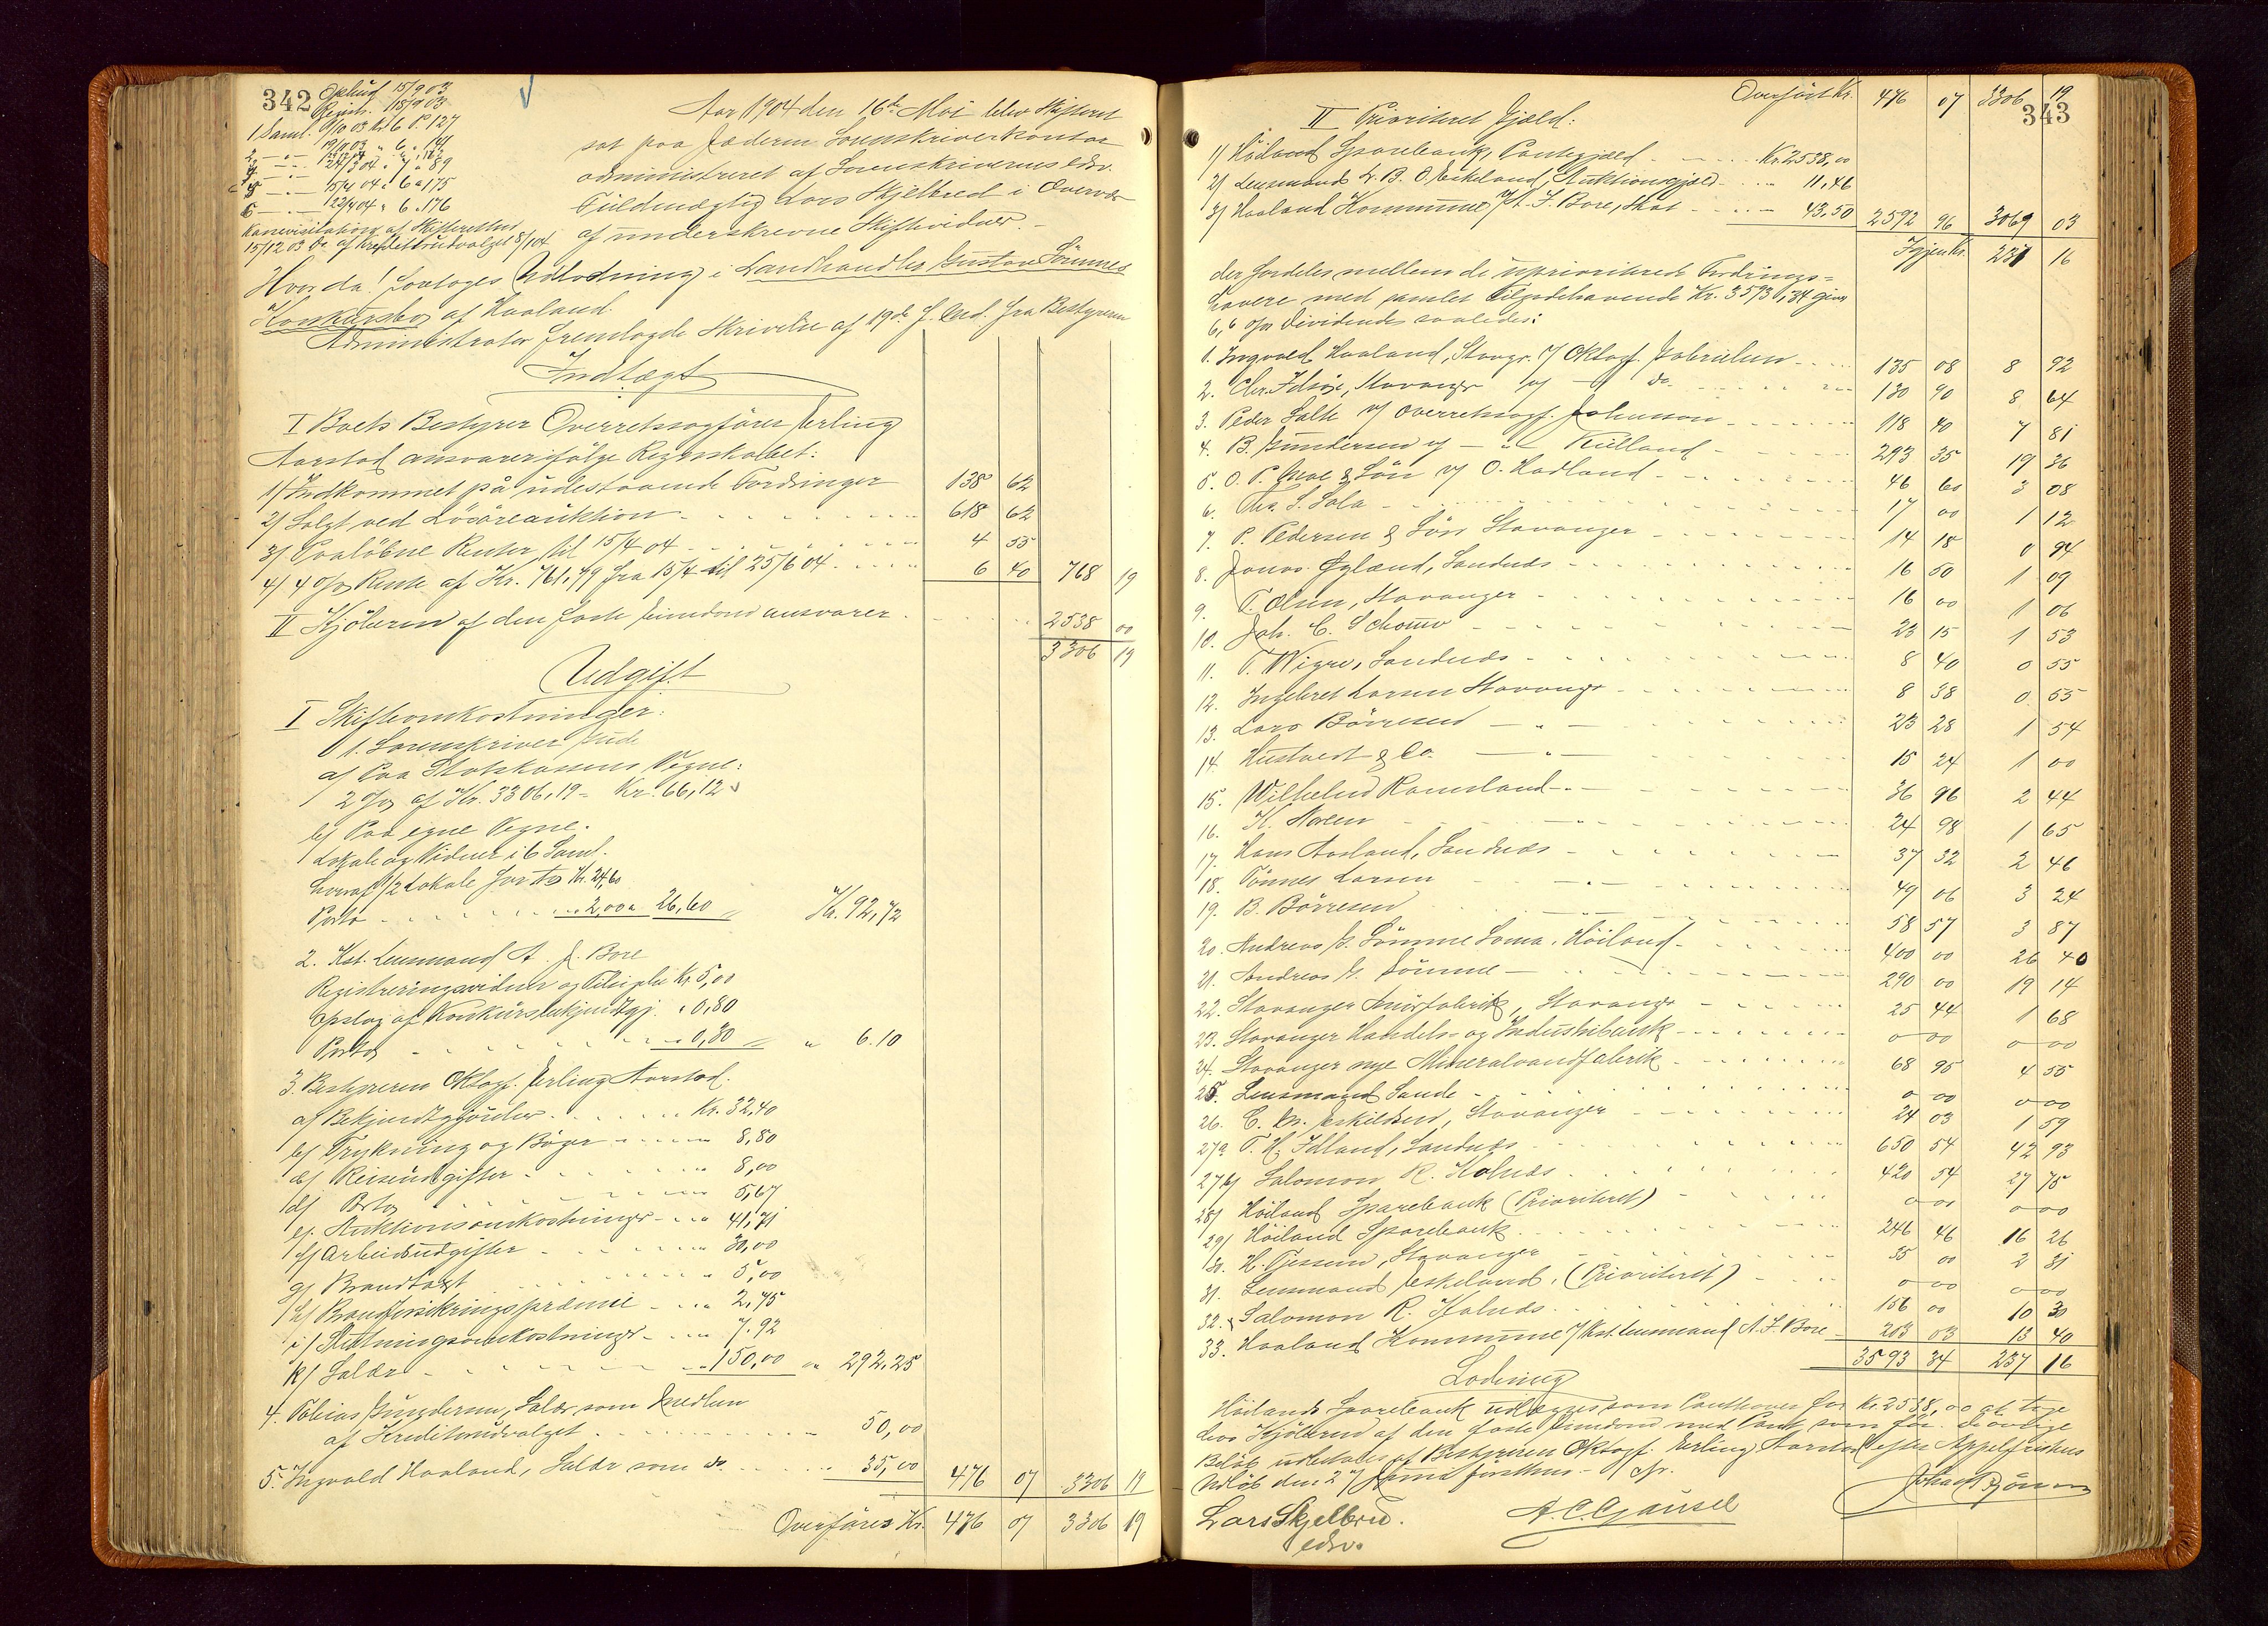 342 Opbud 15/9 03
Registr. 18/9 03
1 Saml. 9/10 03 Kd 6 P. 127
2 — " — 19/11 03 " 6 " 141
15/4 04 " 6 " 175
6 — " — 22/4 04 " 6 " 176
Kassevisitation af Skifteretten
15/12 03 Do. af Kreditorudvalget 8/1 04
Aar 1904 den 16de Mai blev Skifteret
sat paa Jæderens Sorenskriverkontor
administreret af Sorenskriverens edsv.
Fuldmægtig Lars Skjelbred i Overvær
af underskrevne Skiftevidner.
Hvorda! Foretoges Udlodning i Landhandler Gustav Sömmes
Konkursbo af Haaland.
Administrator fremlagde Skrivelse af 19de f. Md. fra Bestyreren
Indtægt
I Boets Bestyrer Overretssagförer Erling
Aarstad ansvarer ifölge Regnskabet:
1/ Indkommet på udestaaende Fordringer 138 62
2/ Solgt ved Lösöreauktion 618 62
3/ Paalöbne Renter til 15/4 04 4 55
4/ 4 o/o Rente af Kr. 761,79 fra 15/4 til 25/6 04 6 40 768 19
II Kjöberen af den faste Eiendom ansvarer 2538 00
3306 19
Udgift
I Skifteomkostninger:
1. Sorenskriver Gude
a/ Paa Statskassens Vegne:
2 o/o af Kr. 3306,19 = Kr. 66,12
b/ Paa egne Vegne.
Lokale og Vidner i 6 Saml.
hvoraf 1/2 Lokale for to Kr. 24,60
Porto 2,00 " 26,60 Kr. 92,72
2. Kst. Lensmand A. J. Bore
Registreringsvidner og Pilieiplie Kr 5,00
Opslag af Konkursbekjendtgj. " 0,80
Porto 0,30 " 6.10
3. Bestyreren ORsagf. Erling Aarstad.
a/ Bekjendtgjörelser Kr. 32,40
b/ Trykning og Böger 8,80
c/ Reiseudgifter 8,00
d/ Porto 5,67
e/ Auktionsomkostninger 41,71
f/ Arbeidsudgifter 30,00
g/ Brandtaxt 5,00
h/ Brandforsikringspræmie 2,75
i/ Retningsomkostninger 7.92
k/ Salær 150,00 " 292,25
4. Tobias Gundersen, Salær som Medlem
af Kreditorudvalget 50,00
5. Ingvald Haaland, Salær som do. 35,00 476 07 3306 19
Overföres Kr. 476 07 3306 19
343
Overfört Kr. 476 07 3306 19
II Prioriteret Gjæld:
1/ Höiland Sparebank, Pantegjæld Kr. 2538,00
2/ Lensmand L. B. O. Eskeland, Auktionsgjæld 11,46
3/ Haaland Kommune v/ A. J. Bore, Skat 43,50 2592 96 3069 03
Igjen Kr. 237 16
der fordeles mellem de uprioriterede Fordrings=
havere med samlet Tilgodehavende Kr. 3593,34 giver
6,6 o/o Dividende saaledes:
1. Ingvald Haaland, Stavgr. v/ ORsagf. Gabrielsen 135 08 8 92
2. Chr. Idsöe, Stavanger v/ — " — do. 130 90 8 64
3. Peder Salte v/ Overretssagf. Johnsson 118 40 7 81
4. B. Gundersen v/ — " — Kielland 293 35 19 36
5. O. P. Moe & Sön v/ O. Hadland 46 60 3 08
6. Ths. S. Sola 17 00 1 12
7. P. Pedersen & Sön Stavanger 14 18 0 94
8. Jonas Øglænd, Sandnæs 16 50 1 09
9. T. Olsen, Stavanger 16 00 1 06
10. Joh. C. Schouw 23 15 1 53
11. T. Wigre, Sandnæs 8 40 0 55
12. Ingebret Larsen Stavanger 8 38 0 55
13. Lars Börresen — " — 23 28 1 54
14. Hustvedt & Co. — " — 15 24 1 00
15. Wilhelm Ramsland — " — 36 96 2 44
16. K. Noreen — " — 24 98 1 65
17. Hans Aasland, Sandnæs 37 32 2 46
18. Tönnes Larsen — " — 49 06 3 24
19. B. Börresen — " — 58 57 3 87
20. Andreas G. Sömme Soma, Höiland 400 00 26 40
21. Andreas G. Sömme — 290 00 19 14
22. Stavanger Snörfabrik, Stavanger 25 44 1 68
23. Stavanger Handels- og Industribank 0 00 0 00
24. Stavanger nye Mineralvandfabrik 68 95 4 55
25. Lensmand Sande 0 00 0 00
26. C. M. Eskildsen, Stavanger 24 03 1 59
27a T. H. Idland, Sandnæs 650 54 42 93
27b/ Salomon R. Holnæs 420 54 27 75
28/ Höiland Sparebank (Prioriteret) 0 00 0 00
29/ Höiland Sparebank 246 46 16 26
30. H. Tjessem, Stavanger 35 00 2 31
31. Lensmand Eskeland, (Prioriteret) 0 00 0 00
32. Salomon R. Holnæs 156 00 10 30
33. Haaland Kommune v/ Kst. Lensmand A. J. Bore 203 03 13 40
3593 34 237 16
Lodning
Höilands Sparebank udlægges som Panthaver for Kr. 2538,00 at tage
hos Kjöberen af den faste Eiendom med Pant som för. De övrige
Belöb udbetales af Bestyreren ORsagf. Erling Aarstad efter Appelfristens
Udlöb den 27 Juni förstkm.
Lars Skjelbred.
edsv.
A. C. Gausel